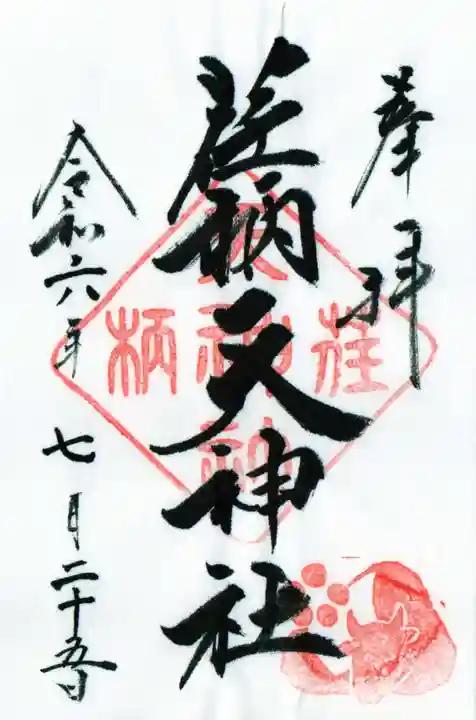 奉拝
荏柄天神社
令和六年
七月二十五日
荏
柄
天
神
社